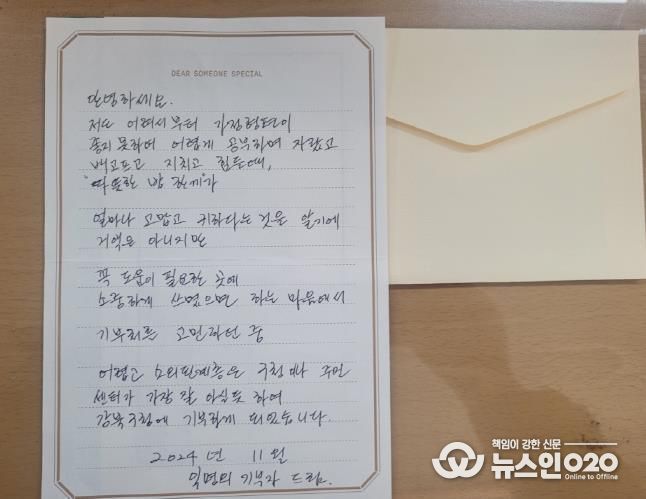 DEAR SOMEONE SPECIAL
안녕하세요.
저도 어려서부터 가정형편이
좋지 못하며 어렵게 공부하며 자랐고
배고프고 지치고 힘들때,
"따뜻한 밥 한끼"가
얼마나 고맙고 귀하다는 것을 알기에
거액은 아니지만
꼭 도움이 필요한 곳에
소중하게 쓰였으면 하는 마음에서
기부처를 고민하던 중
어렵고 소외된계층은 구청이나 주민
센터가 가장 잘 아실듯 하여
강북구청에 기부하게 되었습니다.
2024년 11월
익명의 기부자 드림.
책임이 강한 신문
뉴스인020
Online to Offline